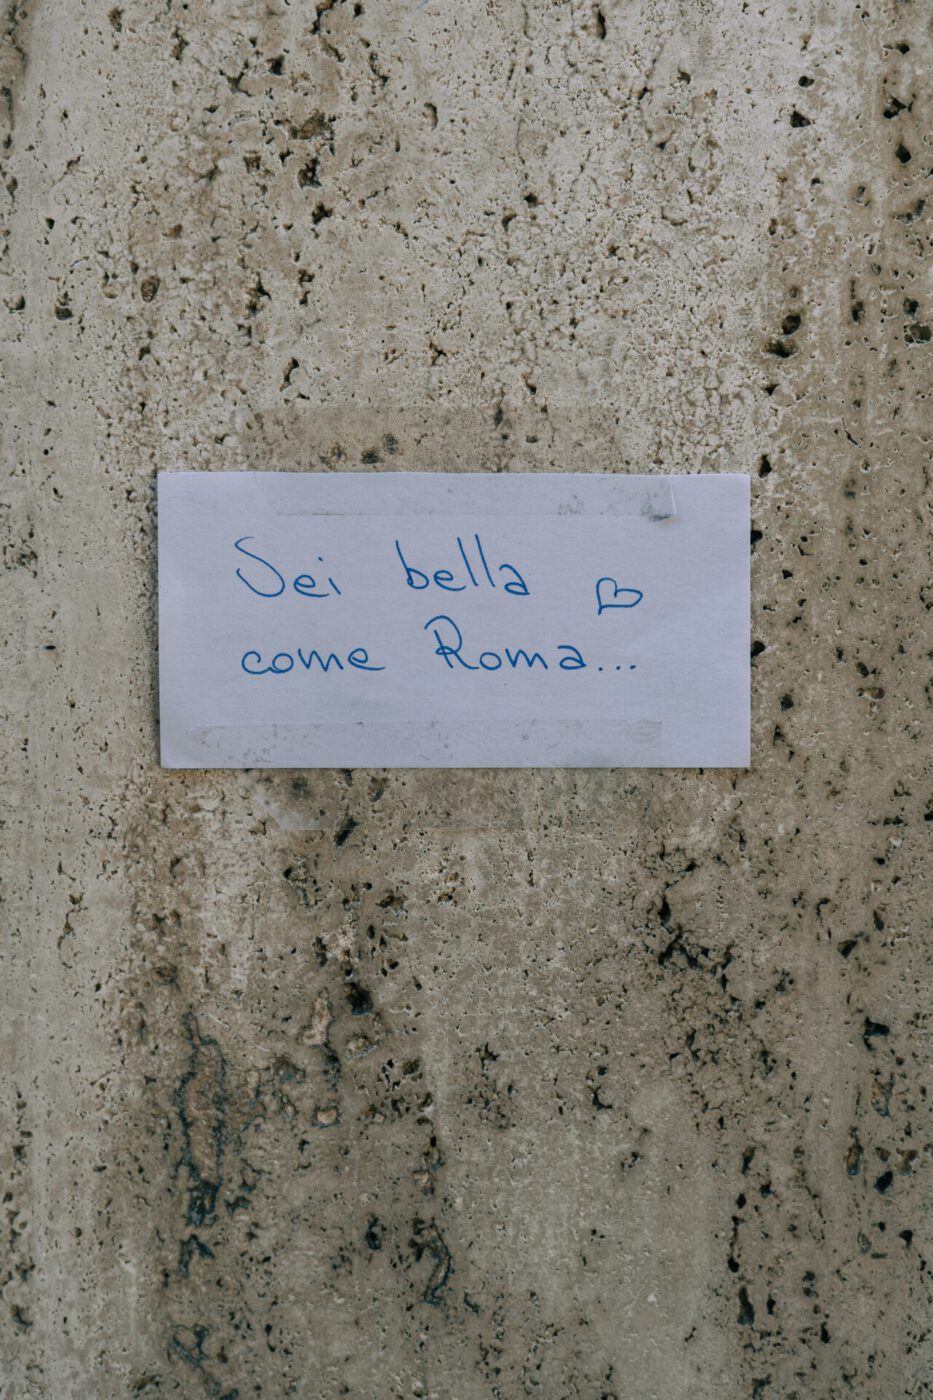 Sei bella
come Roma...